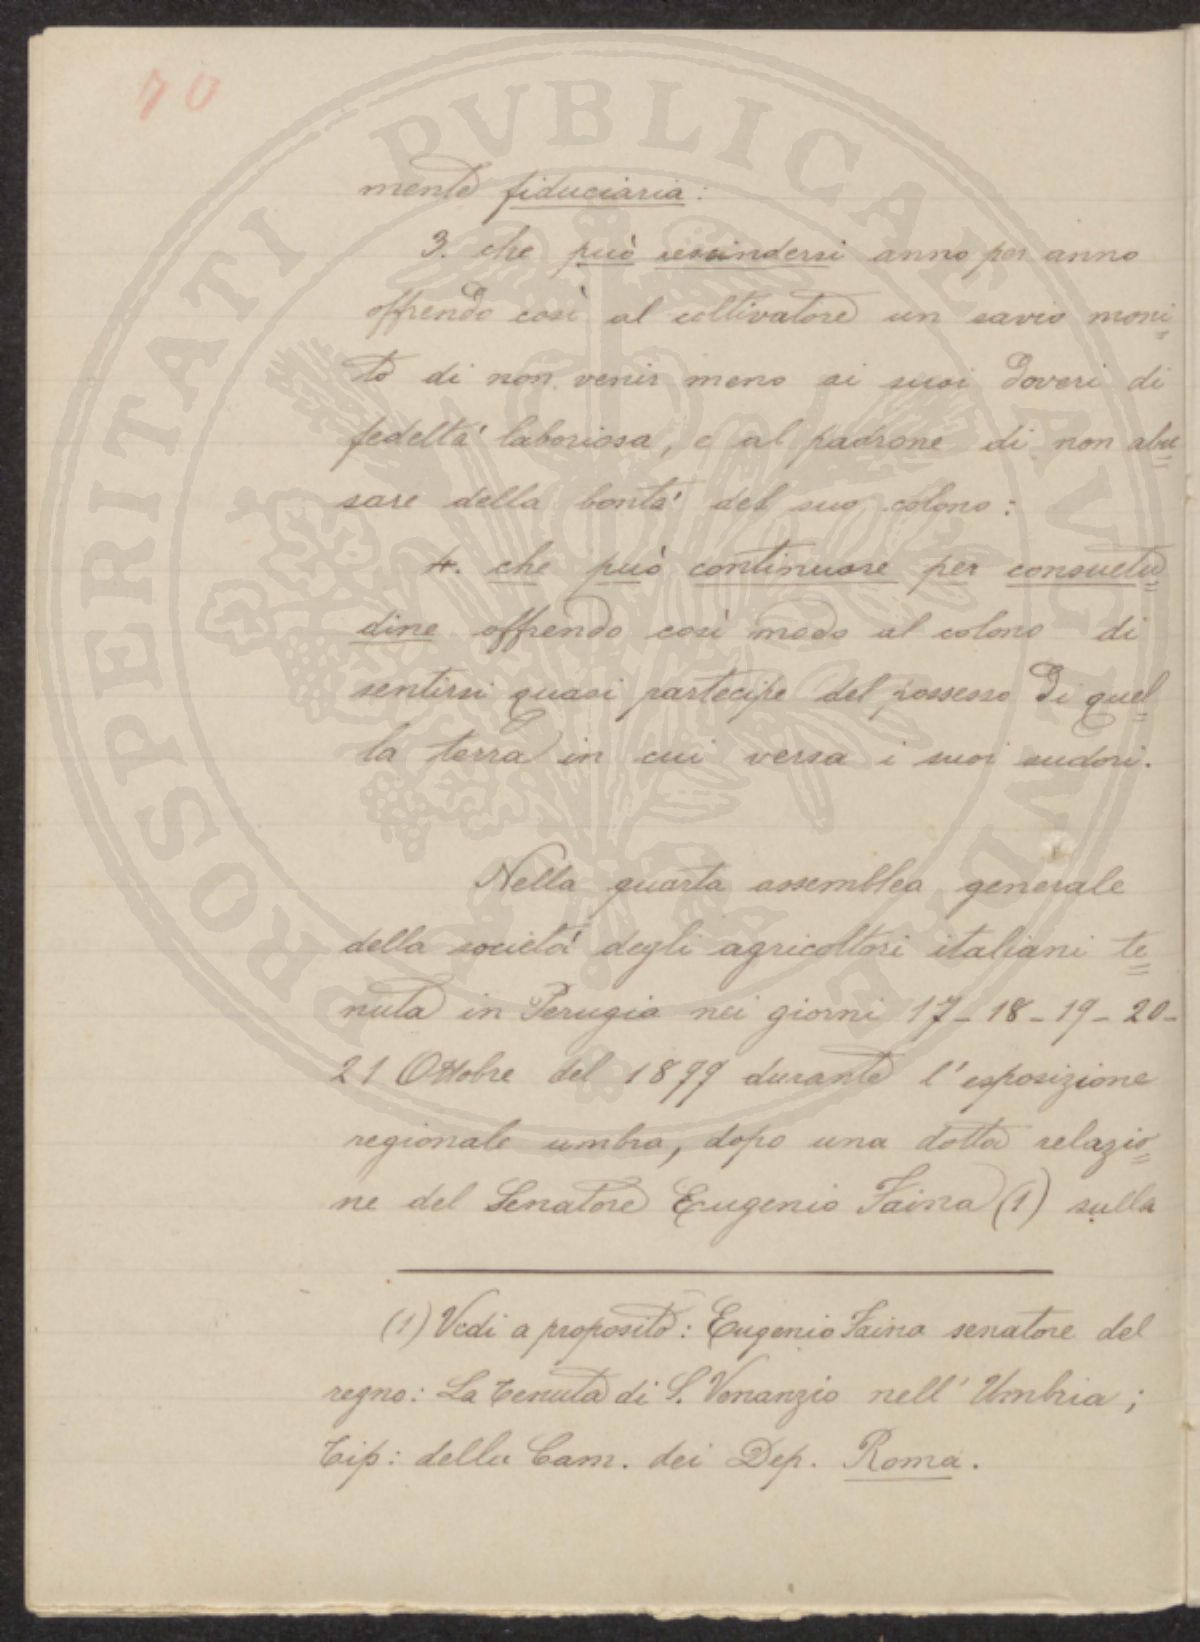 70
PROSPERITATI PVBLICAE AVGENDAE
mente fiduciaria:
3. che può rescindersi anno per anno
offrendo così al coltivatore un savio moni=
to di non venir meno ai suoi doveri di
fedeltà laboriosa, e al padrone di non abu=
sare della bontà del suo colono:
4. che può continuare per consuetu=
dine offrendo così modo al colono di
sentirsi quasi partecipe del possesso di quel=
la terra in cui versa i suoi sudori.
Nella quarta assemblea generale
della società degli agricoltori italiani te=
nuta in Perugia nei giorni 17-18-19-20-
21 Ottobre del 1899 durante l'esposizione
regionale umbra, dopo una dotta relazio=
ne del Senatore Eugenio Faina (1) sulla
(1) Vedi a proposito: Eugenio Faina senatore del
regno: La Tenuta di S. Venanzio nell'Umbria;
Tip: della Cam. dei Dep. Roma.